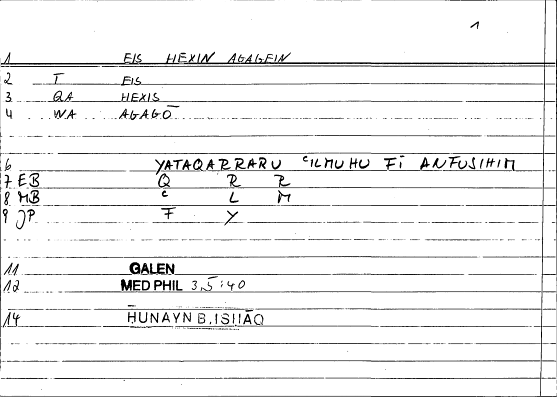 1
1 EIS HEXIN AGAGEIN
2 T EIS
3 QA HEXIS
4 WA AGAGŌ
6 YATAQARRARU ʿILMUHU FĪ ANFUSIHIM
7 EB Q R R
8 MB ʿ L M
9 JP F Y
11 GALEN
12 MED PHIL 3,5:40
14 ḤUNAYN B. ISḤĀQ